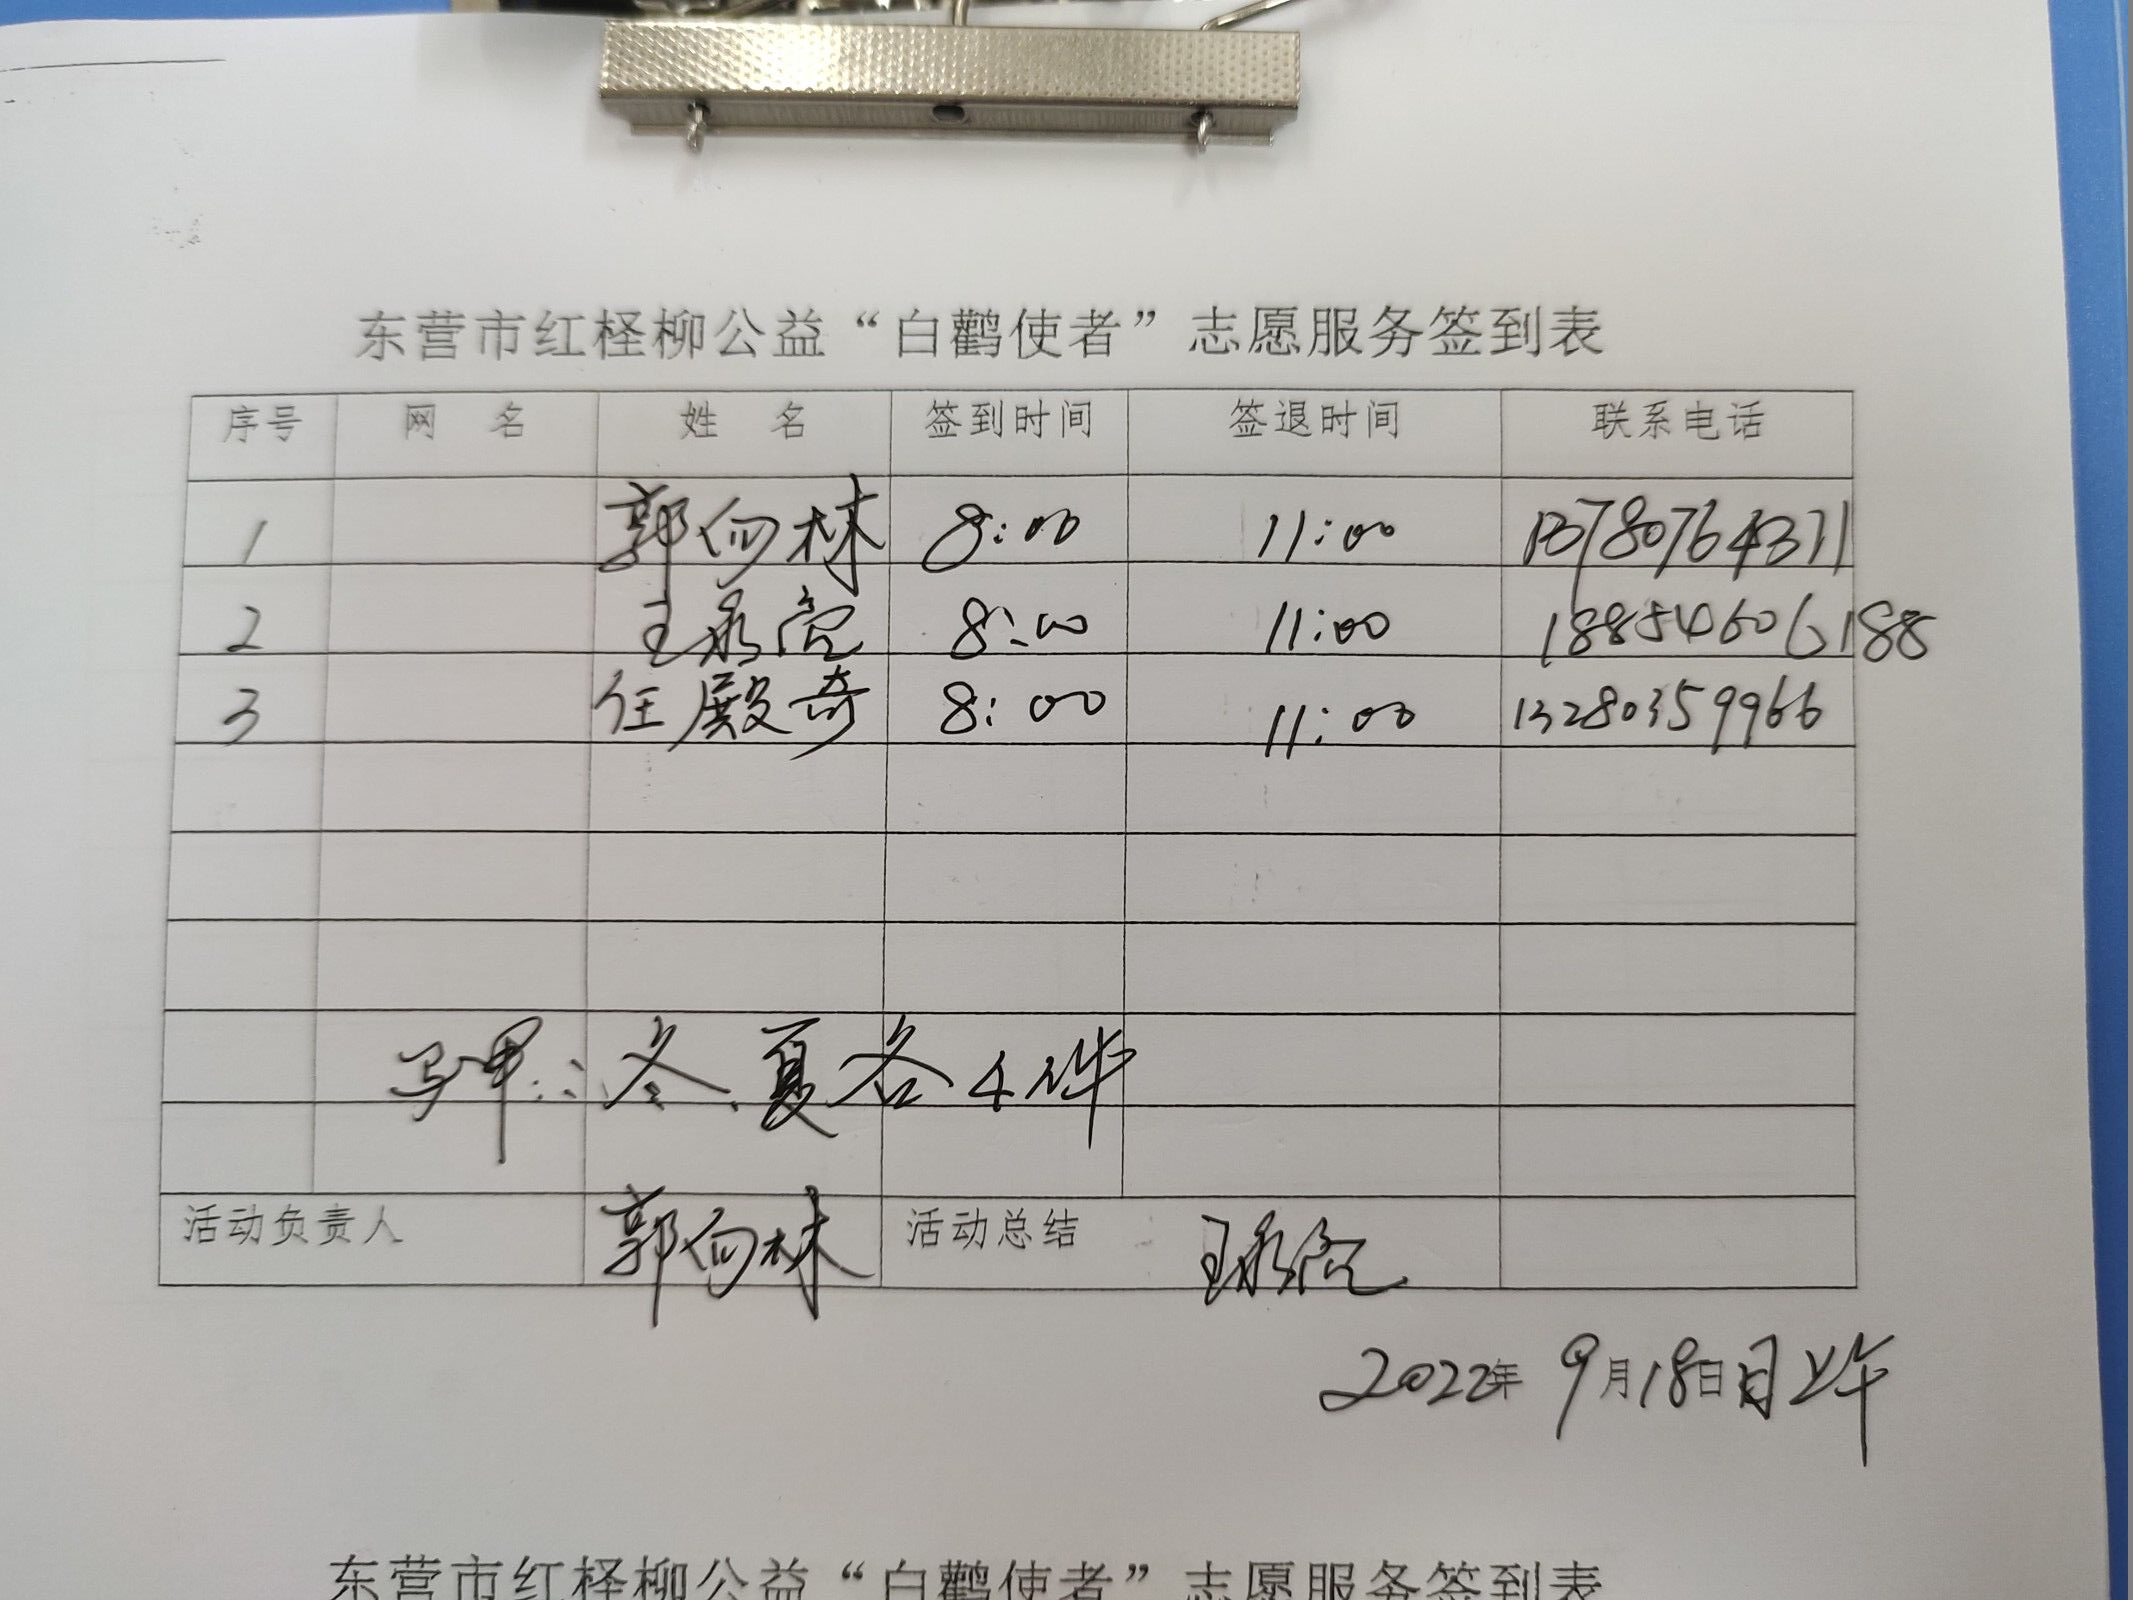 东营市红柽柳公益“白鹳使者”志愿服务签到表
序号 网 名 姓 名 签到时间 签退时间 联系电话
1 郭向林 8:00 11:00 13780764311
2 王永亮 8:00 11:00 18854606188
3 任殿奇 8:00 11:00 13280359966
马甲: 冬、夏各4件
活动负责人 郭向林 活动总结 王永亮
2022年 9月18日日上午
东营市红柽柳公益“白鹳使者”志愿服务签到表